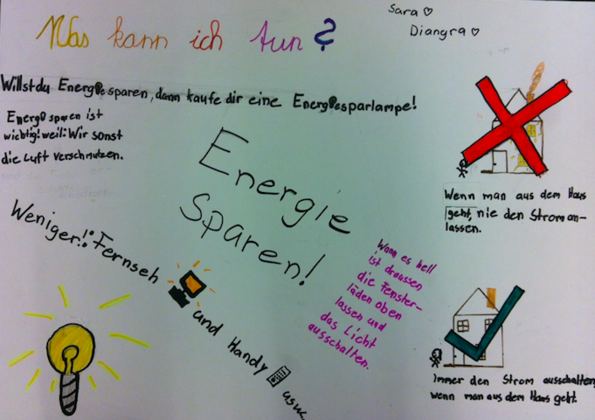 Sara ♡
Diangra ♡
Was kann ich tun?
Willst du Energie sparen, dann kaufe dir eine Energiesparlampe!
Energie sparen ist
wichtig! weil: Wir sonst
die Luft verschmutzen.
Energie
sparen!
Weniger: Fernseh und Handy usw
Wenn es hell
ist draussen
die Fenster-
läden oben
lassen und
das Licht
ausschalten.
Wenn man aus dem Haus
geht, nie den Strom an-
lassen.
Immer den Strom ausschalten,
wenn man aus dem Haus geht.